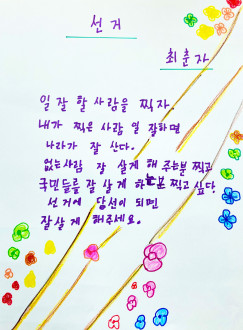 선거
최춘자
일 잘 할 사람을 찍자
내가 찍은 사람 일 잘하면
나라가 잘 산다.
없는사람 잘 살게 해 주는분 찍고
국민들을 잘 살게 하는분 찍고 싶다.
선거에 당선이 되면
잘살게 해주세요.